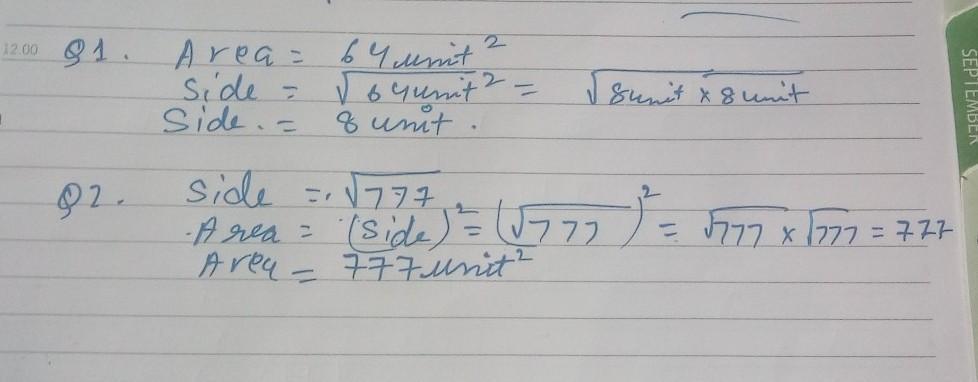 12.00
Q1. Area = 64 unit²
Side = √64 unit² = √8 unit × 8 unit
Side. = 8 unit.
Q2. Side = √777
Area = (Side)² = (√777)² = √777 × √777 = 777
Area = 777 unit²
SEPTEMBER